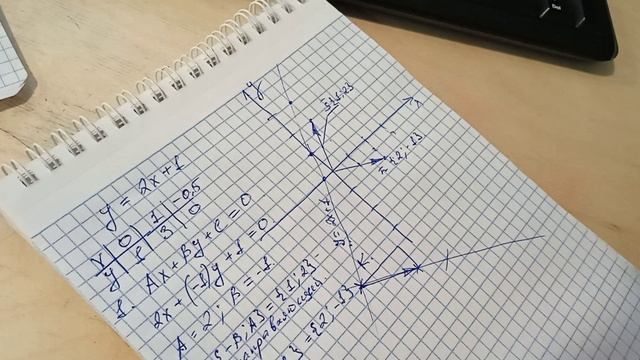 y = 2x + 1
x 0 1 -0,5
y 1 3 0
1. Ax + By + C = 0
2x + (-1)y + 1 = 0
A = 2; B = -1
-B; A} = {1; 2} -
направляющий
= {2; -1}
y
x
s{1; 2}
n{2; -1}
K